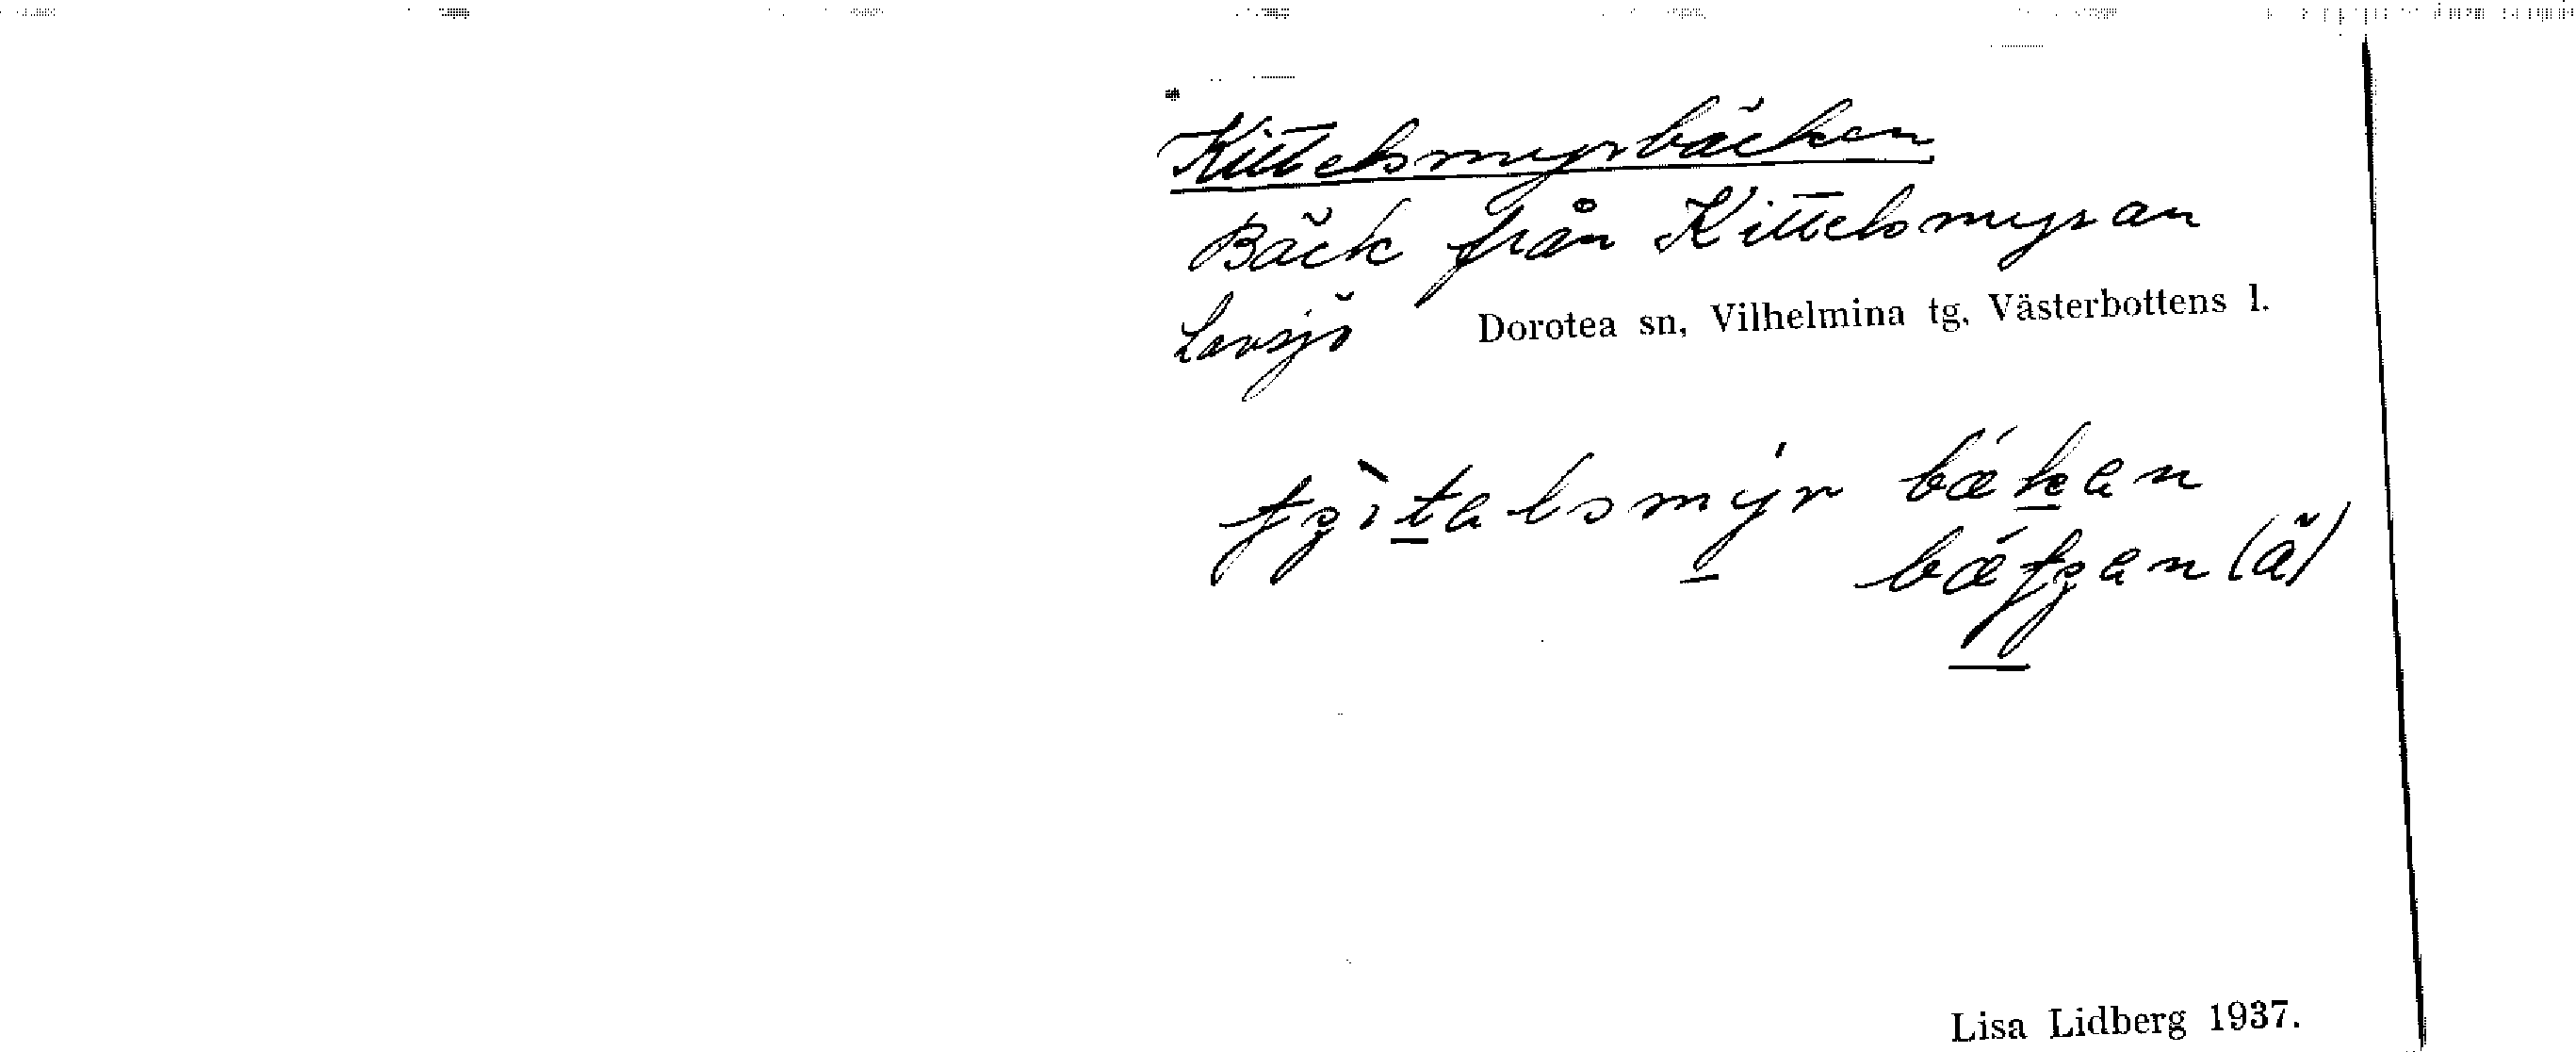 Kittelsmyrbäcken
Bäck från Kittelsmyran
Lavsjö Dorotea sn, Vilhelmina tg, Västerbottens l.
bǽkan
(ä)
Lisa Lidberg 1937.